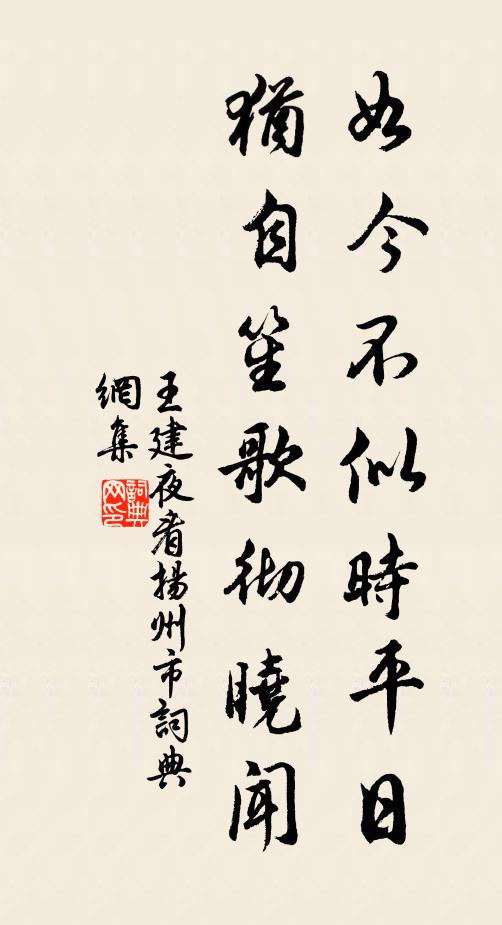 如今不似時平日
猶自笙歌彻曉闻
王建夜看揚州市詞典
網集
詞典网印